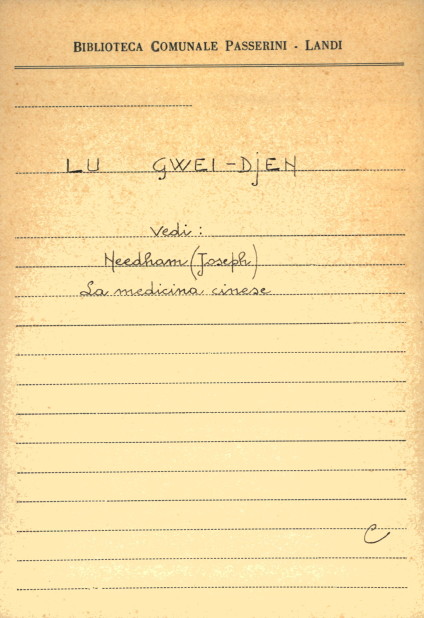 BIBLIOTECA COMUNALE PASSERINI - LANDI
LU GWEI-DJEN
Vedi:
Needham (Joseph)
La medicina cinese
C